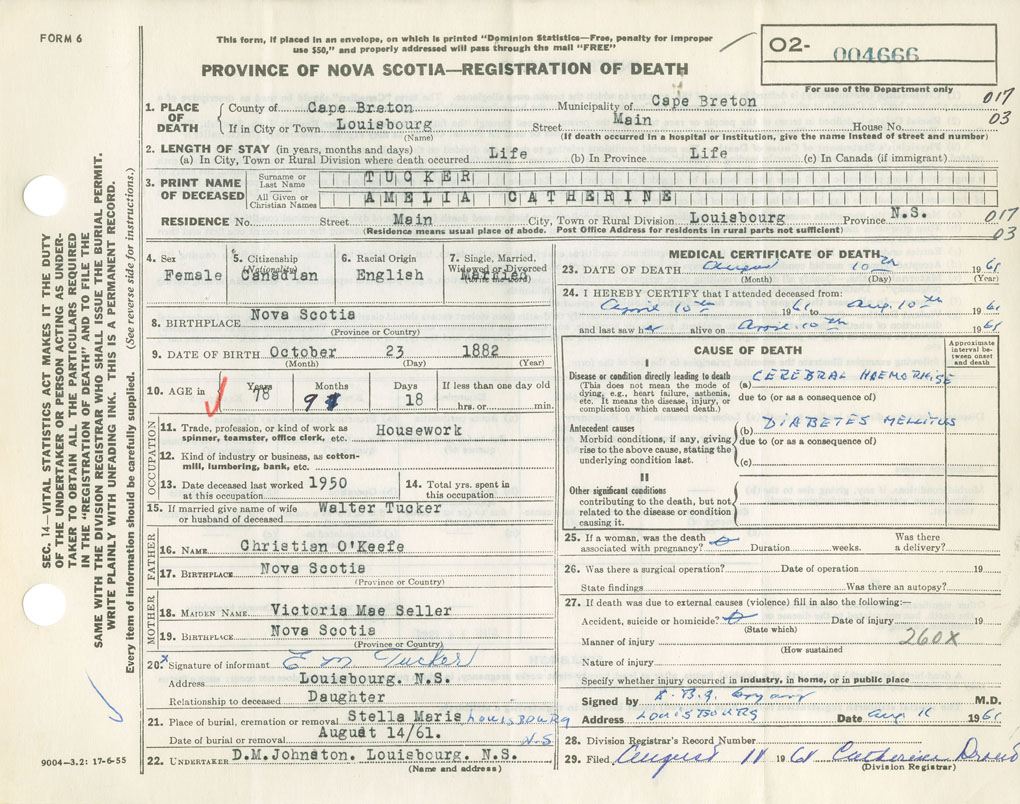 FORM 6
This form, if placed in an envelope, on which is printed "Dominion Statistics—Free, penalty for improper
use $50," and properly addressed will pass through the mail "FREE"
O2- 004666
For use of the Department only
PROVINCE OF NOVA SCOTIA—REGISTRATION OF DEATH
1. PLACE OF DEATH
County of Cape Breton Municipality of Cape Breton 017
If in City or Town Louisbourg Street Main House No. 03
(Name) (If death occurred in a hospital or institution, give the name instead of street and number)
2. LENGTH OF STAY (in years, months and days)
(a) In City, Town or Rural Division where death occurred Life (b) In Province Life (c) In Canada (if immigrant)
3. PRINT NAME OF DECEASED
Surname or Last Name TUCKER
All Given or Christian Names AMELIA CATHERINE
RESIDENCE No. Street Main City, Town or Rural Division Louisbourg Province N.S. 017
(Residence means usual place of abode. Post Office Address for residents in rural parts not sufficient) 03
4. Sex Female
5. Citizenship (Nationality) Canadian
6. Racial Origin English
7. Single, Married, Widowed or Divorced (Write the word) Married
8. BIRTHPLACE Nova Scotia
(Province or Country)
9. DATE OF BIRTH October 23 1882
(Month) (Day) (Year)
10. AGE in Years 78 Months 9 Days 18 If less than one day old hrs. or min.
OCCUPATION
11. Trade, profession, or kind of work as spinner, teamster, office clerk, etc. Housework
12. Kind of industry or business, as cotton-mill, lumbering, bank, etc.
13. Date deceased last worked at this occupation 1950
14. Total yrs. spent in this occupation
15. If married give name of wife or husband of deceased Walter Tucker
FATHER
16. NAME Christian O'Keefe
17. BIRTHPLACE Nova Scotia
(Province or Country)
MOTHER
18. MAIDEN NAME Victoria Mae Seller
19. BIRTHPLACE Nova Scotia
(Province or Country)
20. x Signature of informant E M Tucker
Address Louisbourg. N.S.
Relationship to deceased Daughter
21. Place of burial, cremation or removal Stella Maris LOUISBOURG
Date of burial or removal August 14/61. N.S
22. UNDERTAKER D.M.Johnston. Louisbourg. N.S.
(Name and address)
MEDICAL CERTIFICATE OF DEATH
23. DATE OF DEATH August 10th 1961
(Month) (Day) (Year)
24. I HEREBY CERTIFY that I attended deceased from:
April 10th 1961 to Aug. 10th 1961
and last saw her alive on April 10th 1961
CAUSE OF DEATH
Approximate interval between onset and death
I
Disease or condition directly leading to death
(This does not mean the mode of dying, e.g., heart failure, asthenia, etc. It means the disease, injury, or complication which caused death.)
(a) CEREBRAL HAEMORRHAGE
due to (or as a consequence of)
Antecedent causes
Morbid conditions, if any, giving rise to the above cause, stating the underlying condition last.
(b) DIABETES MELLITUS
due to (or as a consequence of)
(c)
II
Other significant conditions
contributing to the death, but not related to the disease or condition causing it.
25. If a woman, was the death associated with pregnancy? Duration weeks. Was there a delivery?
26. Was there a surgical operation? Date of operation 19
State findings Was there an autopsy?
27. If death was due to external causes (violence) fill in also the following:—
Accident, suicide or homicide? Date of injury 19
(State which)
Manner of injury 260X
(How sustained
Nature of injury
Specify whether injury occurred in industry, in home, or in public place
Signed by M.D.
Address LOUISBOURG Date Aug 11 1961
28. Division Registrar's Record Number
29. Filed August 11 1961 Catherine
(Division Registrar)
SEC. 14—VITAL STATISTICS ACT MAKES IT THE DUTY
OF THE UNDERTAKER OR PERSON ACTING AS UNDER-
TAKER TO OBTAIN ALL THE PARTICULARS REQUIRED
IN THE "REGISTRATION OF DEATH" AND TO FILE THE
SAME WITH THE DIVISION REGISTRAR WHO SHALL ISSUE THE BURIAL PERMIT.
WRITE PLAINLY WITH UNFADING INK. THIS IS A PERMANENT RECORD.
Every item of information should be carefully supplied. (See reverse side for instructions.)
9004-3.2: 17-6-55